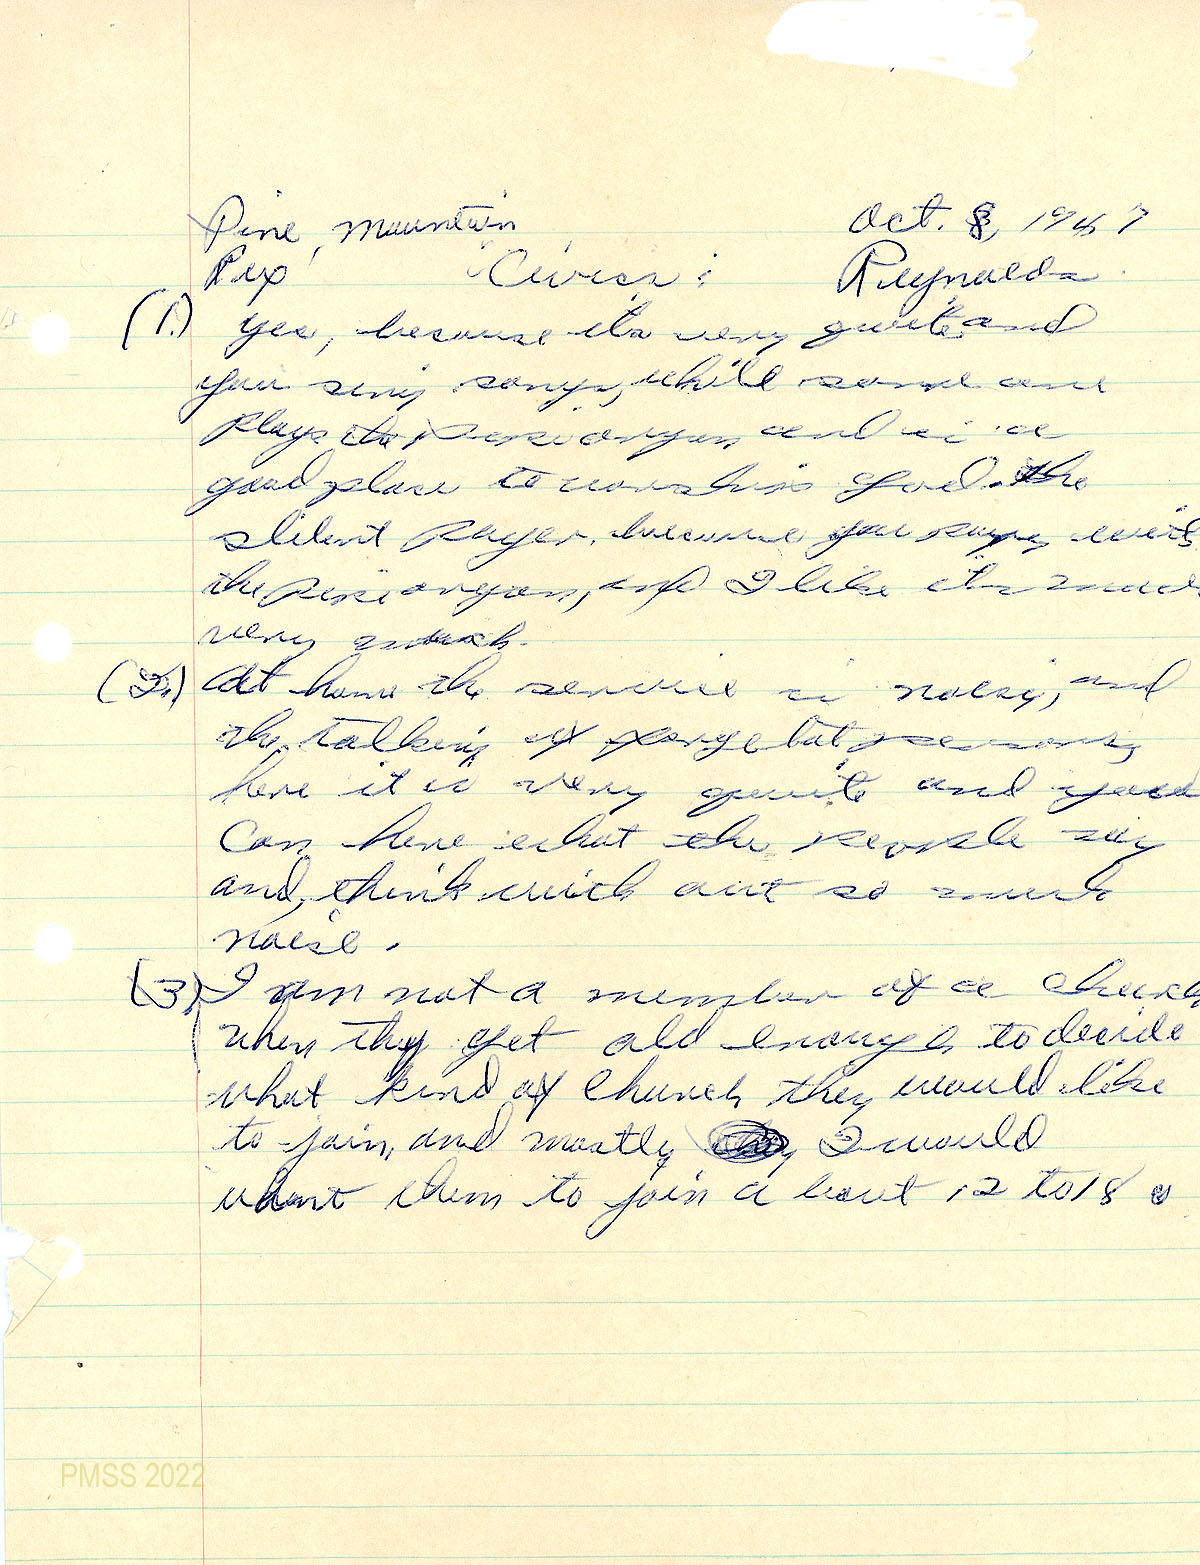 Pine Mountain Oct. 8, 1947
Rex Civics: Reynolds
(1.) Yes, because its very quite and
you sing songs, while some one
plays the pipe organ and is a
good place to worship God. the
slilent prayer, because you pray with
the pipe organ, and I like its
very much.
(2.) At home the service is noisy, and
the talking of persons,
here it is very quite and you
Can here what the people say
and, think with out so much
noise.
(3) I am not a member of a church
when they get old enough to decide
what kind of Church they would like
to join, and mostly I would
want them to join a bout 12 to 18.
PMSS 2022